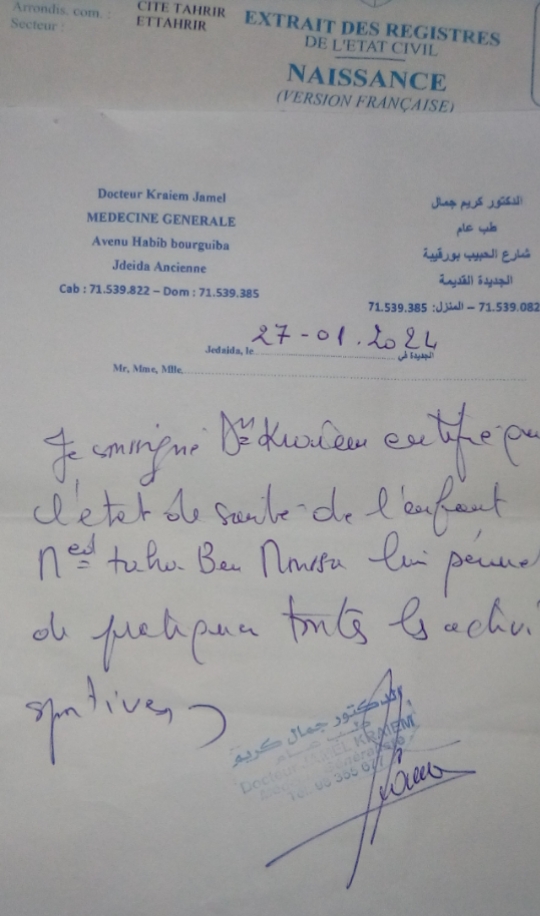 Arrondis. com. : CITE TAHRIR
Secteur : ETTAHRIR
EXTRAIT DES REGISTRES
DE L'ETAT CIVIL
NAISSANCE
(VERSION FRANÇAISE)
Docteur Kraiem Jamel
MEDECINE GENERALE
Avenu Habib bourguiba
Jdeida Ancienne
Cab : 71.539.822 – Dom : 71.539.385
الدكتور كريم جمال
طب عام
شارع الحبيب بورقيبة
الجديدة القديمة
71.539.082 – المنزل: 71.539.385
Jedaida, le 27-01.2024 الجديدة في
Mr, Mme, Mlle
Je soussigné Dr Kraiem certifie que
l'état de santé de l'enfant
Med taha Ben Moussa lui permet
de pratiquer toutes les activi
sportives
الدكتور جمال كريم
طب عام
Docteur Jamel KRAIEM